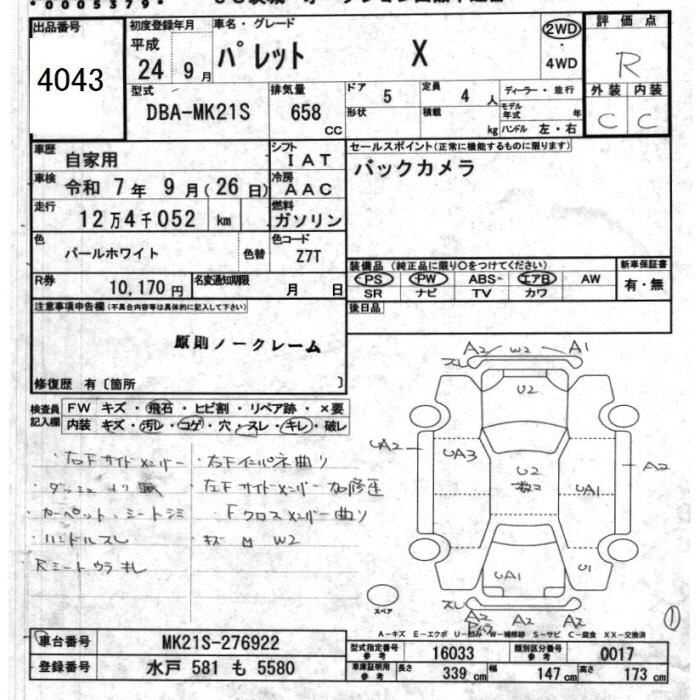 *0005379*
出品番号
4043
初度登録年月
平成
24 9月
車名・グレード
パレット X
2WD
・
4WD
評価点
R
外装 内装
C C
型式
DBA-MK21S
排気量
658
CC
ドア
5
定員
4人
ディーラー・並行
形状
積載
kg
モデル年式
年
ハンドル 左・右
車歴
自家用
シフト
IAT
車検
令和 7年 9月(26日)
冷房
AAC
走行
12万4千052 km
燃料
ガソリン
色
パールホワイト
色替
色コード
Z7T
R券
10,170円
名変通知期限
月 日
セールスポイント(正常に機能するものに限ります)
バックカメラ
装備品 (純正品に限り○をつけてください)
PS PW ABS エアB AW
SR ナビ TV カワ
新車保証書
有・無
後日品
注意事項申告欄(不具合内容等は具体的に記入して下さい)
原則ノークレーム
修復歴 有〔箇所 〕
検査員
記入欄
FW キズ・飛石・ヒビ割・リペア跡・×要
内装 キズ・汚レ・コゲ・穴・スレ・キレ・破レ
・右Fサイドメンバー ・右Fインパネ曲り
・左Fサイドメンバー
・カーペット、シートシミ Fクロスメンバー曲り
・ハンドルスレ
Rシートウラキレ
スレ A2 W2 A1
U2
UA2 UA3 U2 UA1 A2
UA1 U1
スレ
A2 A2
スペア
①
A−キズ E−エクボ U−凹み W−補修跡 S−サビ C−腐食 XX−交換済
車台番号
MK21S-276922
登録番号
水戸 581 も 5580
型式指定番号
参考
16033
類別区分番号
参考
0017
車庫証明用
参考
長さ 339 cm 幅 147 cm 高さ 173 cm